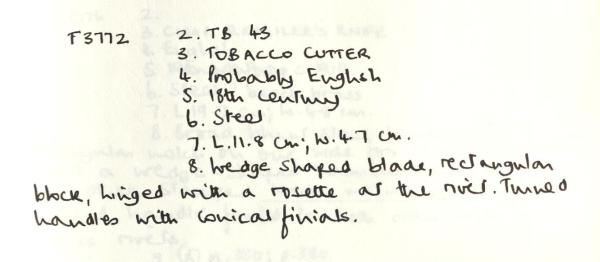 F3772 2. TB 43
3. TOBACCO CUTTER
4. Probably English
5. 18th century
6. Steel
7. L.11.8 cm; W.4.7 cm.
8. Wedge shaped blade, rectangular
block, hinged with a rosette as the rivet. Turned
handles with conical finials.